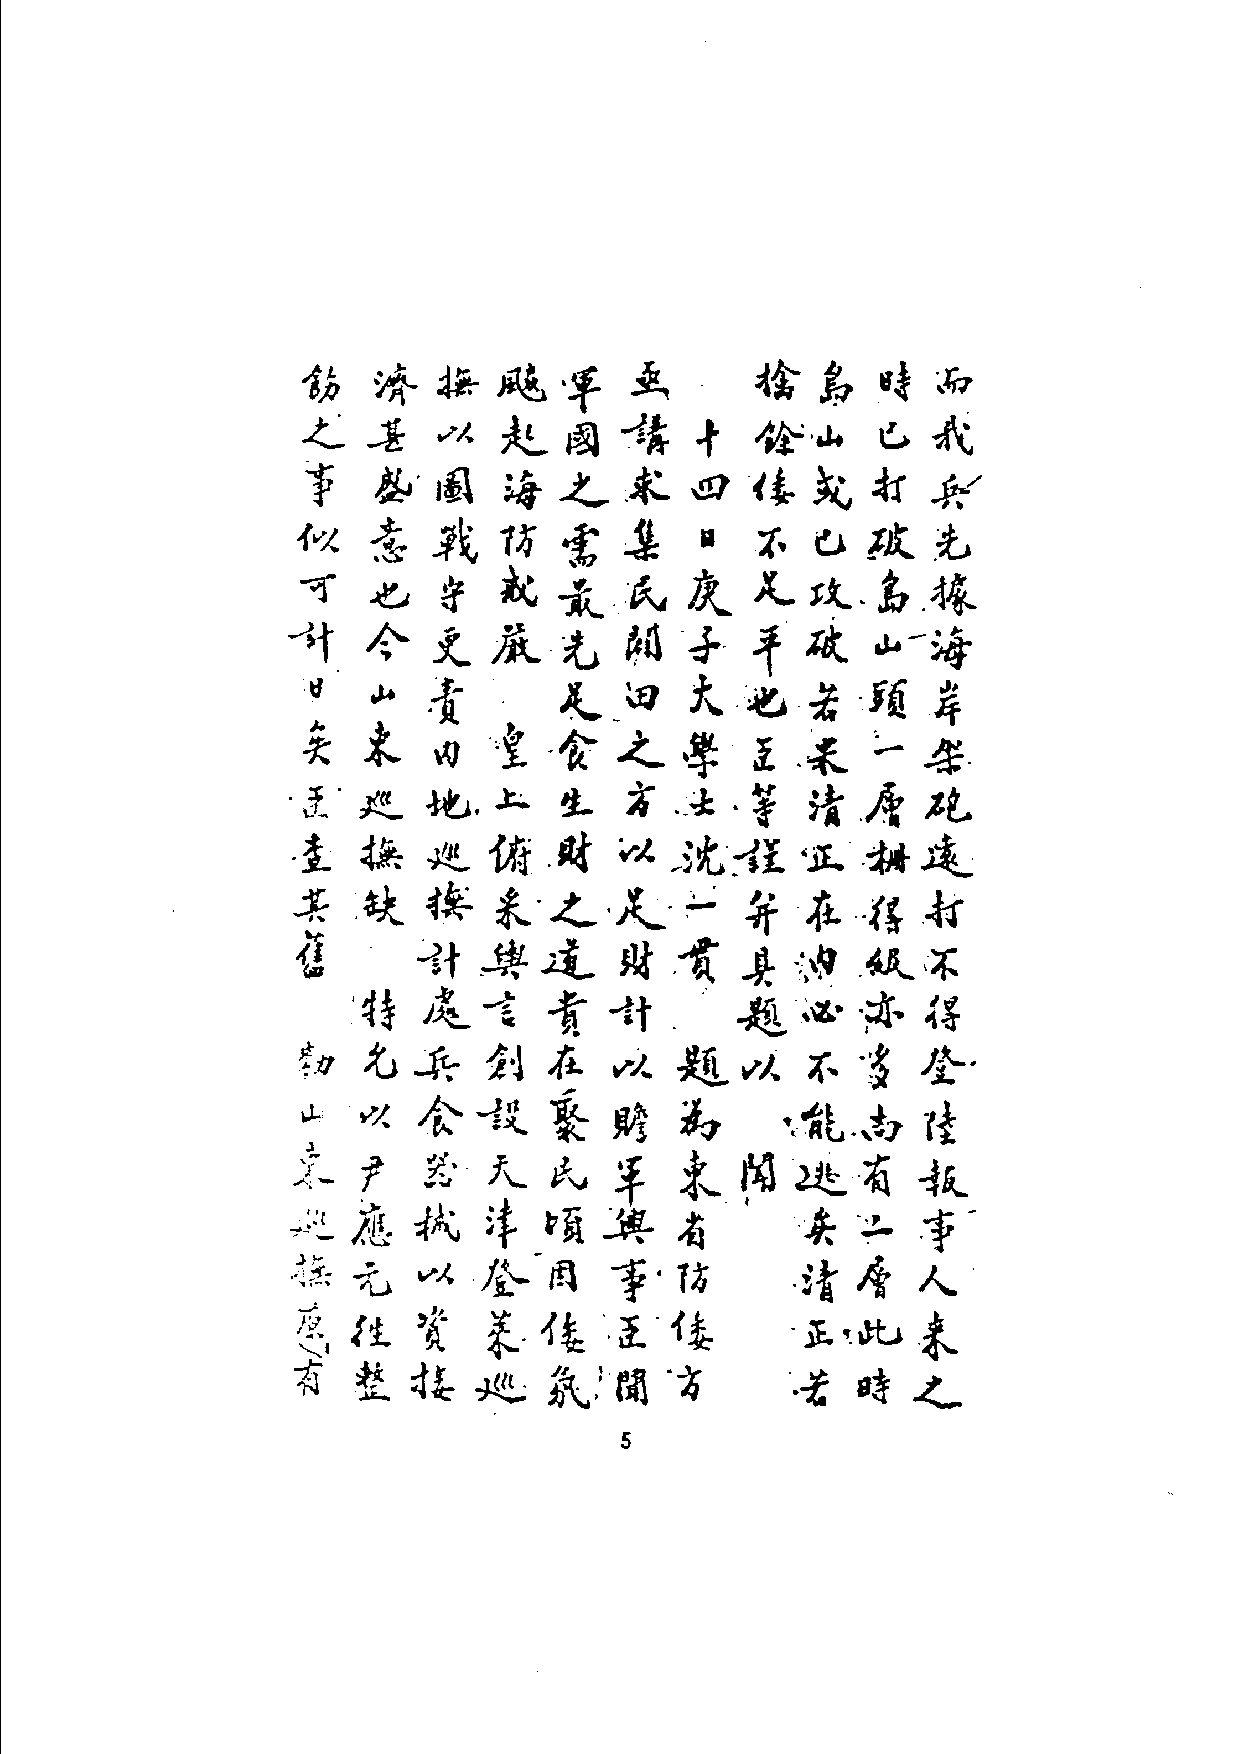 而我兵先據海岸架砲遠打不得登陸報事人来之
時已打破島山頭一層柵得級亦多尚有二層此時
島山或已攻破若果清正在內必不能逃矣清正若
擒餘倭不足平也臣等謹并具題以 聞
十四日庚子大學士沈一貫 題為東省防倭方
亟講求集民開田之方以足財計以贍軍興事臣聞
軍國之需最先足食生財之道貴在聚民頃因倭氛
颷起海防戒嚴 皇上俯采輿言創設天津登萊巡
撫以圖戰守更責內地巡撫計處兵食器械以資接
濟甚盛意也今山東巡撫缺 特允以尹應元往整
飭之事似可計日矣臣查其舊 勅山東巡撫原有
5